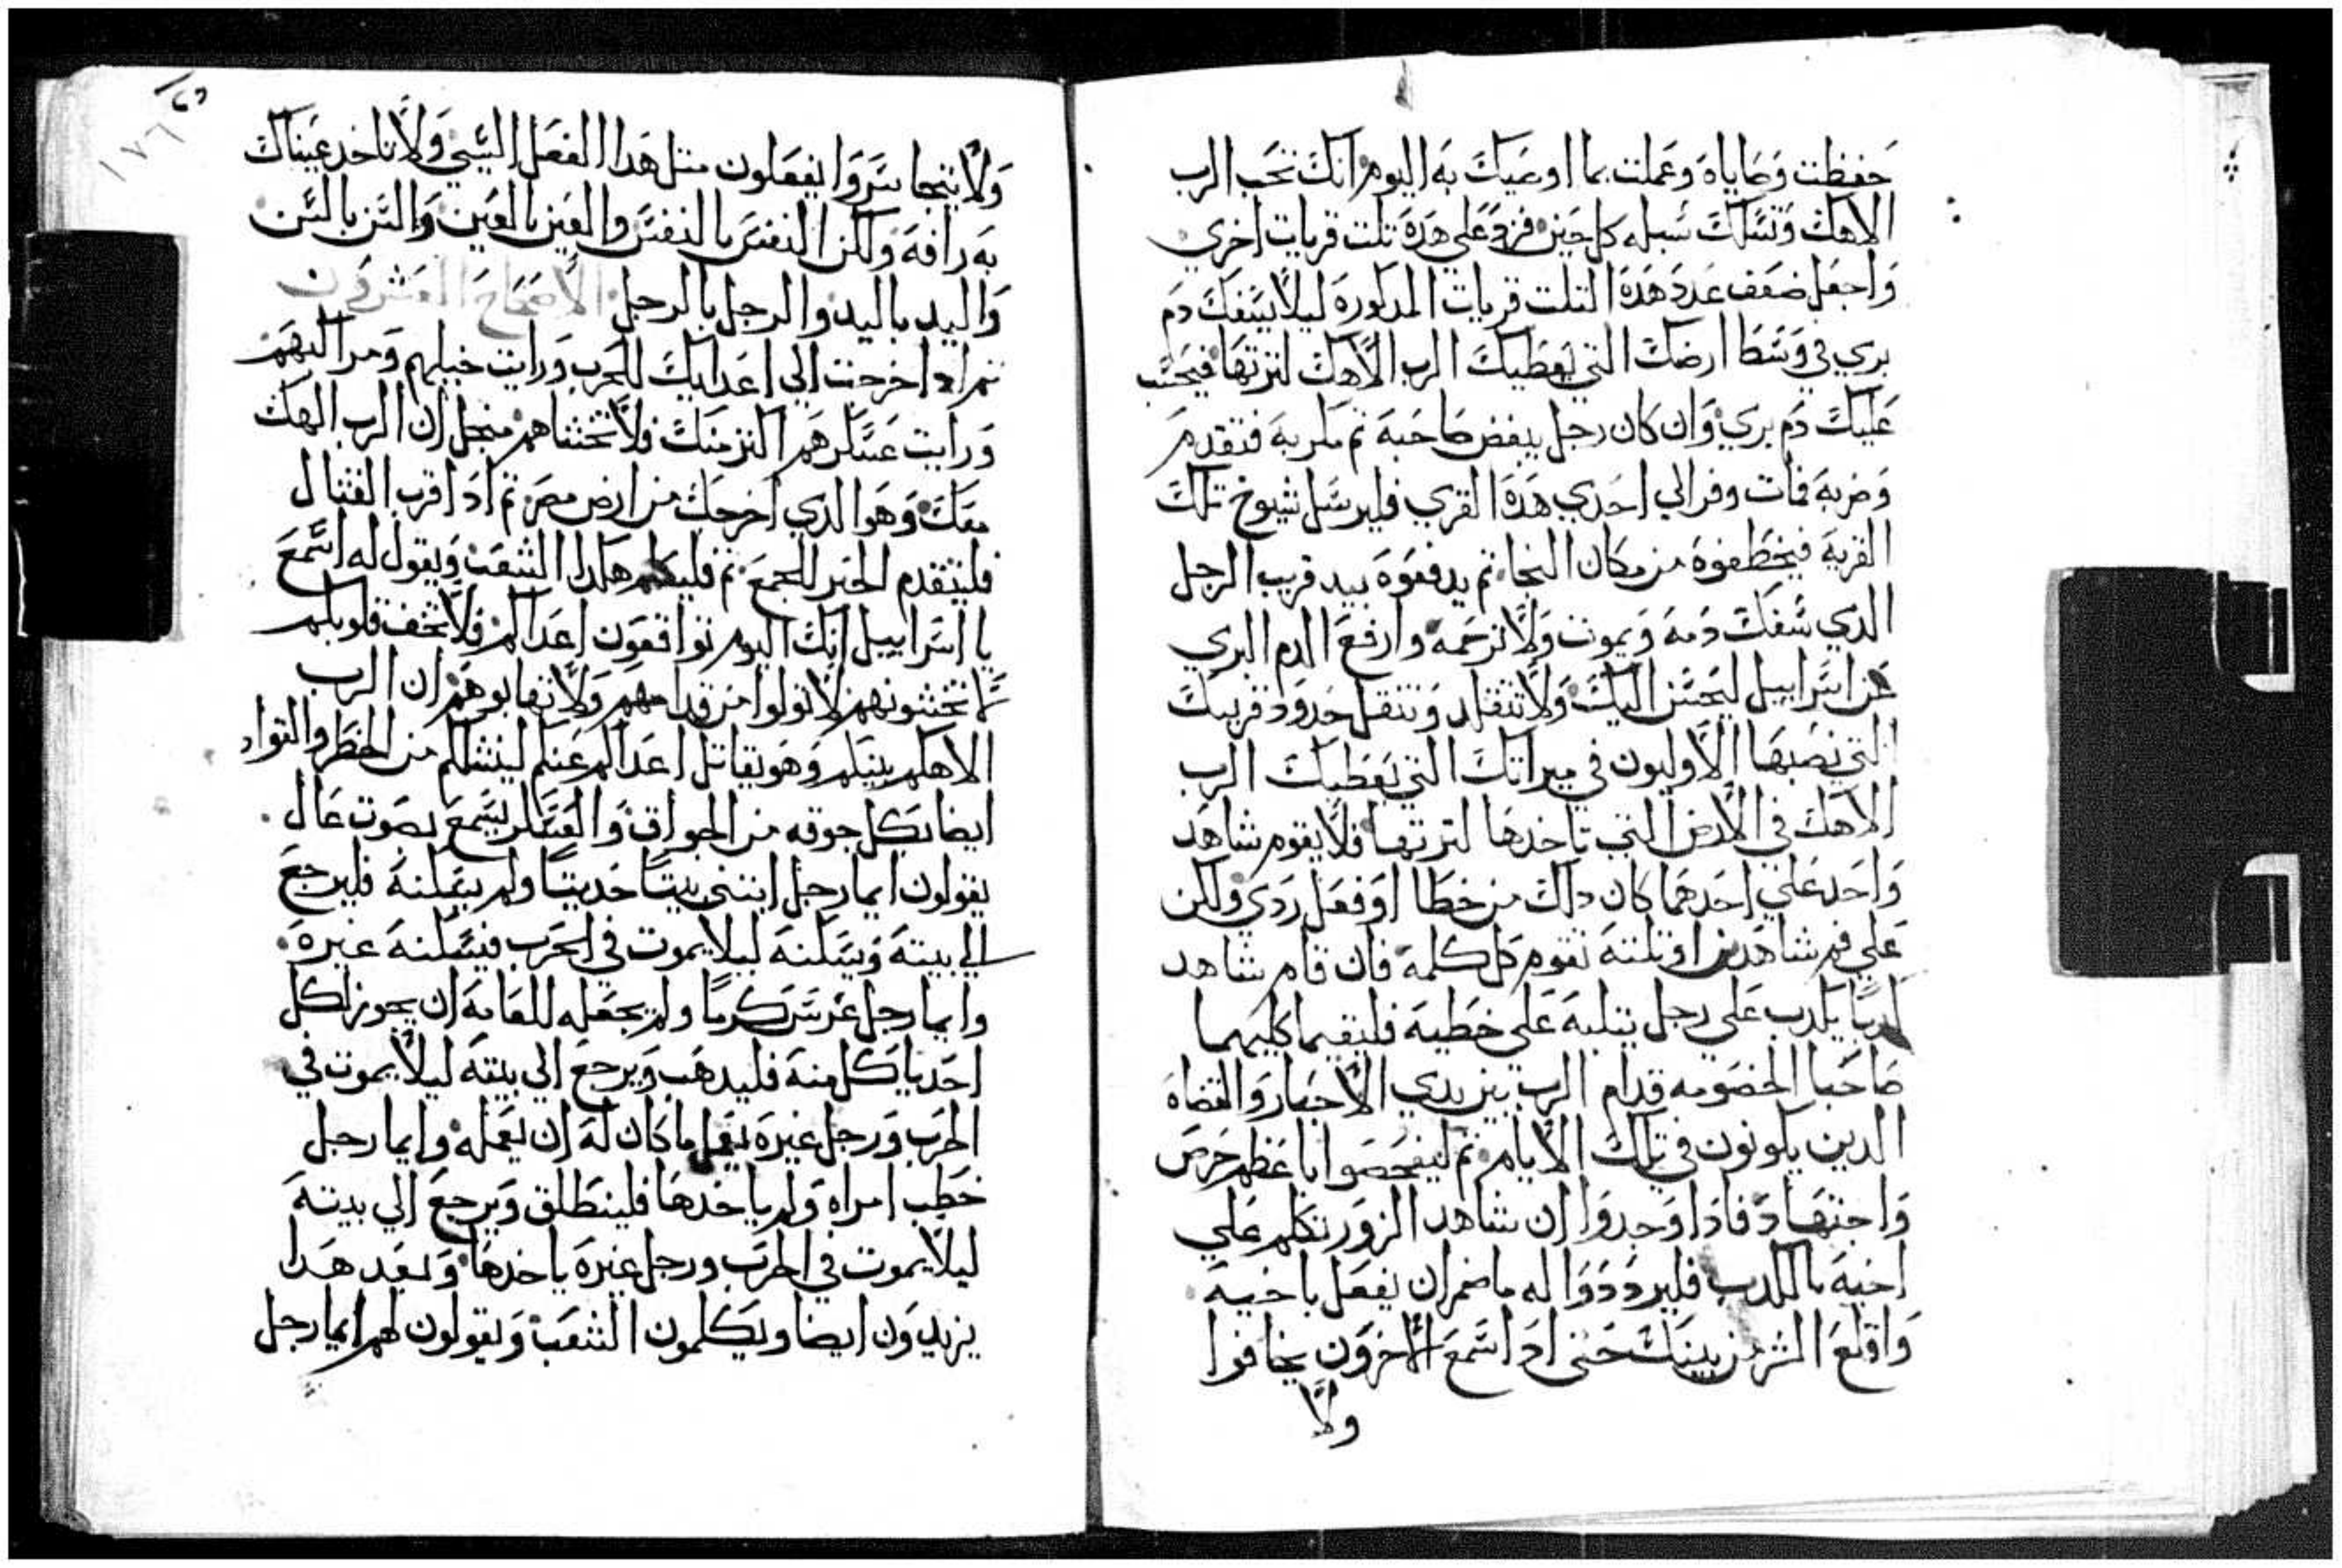 حفظت وصاياه وعملت بما اوصيك به اليوم انك تحب الرب
الاهك وتسلك سبله كل حين فزد علي هده تلت قريات اخري
واجعل ضعف عدد هده التلت قريات المدكوره ليلا يسفك دم
بري في وسط ارضك التي يعطيك الرب الاهك لترتها فيحسب
عليك دم بري وان كان رجل يبغض صاحبه تم مكر به فتقدم
وضربه فمات وفر الي احدي هده القري فليرسل شيوخ تلك
القريه فيخطفوه من مكان النجا تم يدفعوه بيد قريب الرجل
الدي سفك دمه ويموت ولا ترحمه وارفع الدم البري
من اسراييل ليحسن اليك ولا تنقل وتنقل حدود قريبك
التي نصبها الاوليون في ميراتك التي يعطيك الرب
الاهك في الارض التي تاخدها لترتها فلا يقوم شاهد
واحد علي احد مهما كان دلك من خطا او فعل ردي ولكن
علي فم شاهدين او تلته تقوم كل كلمه فان قام شاهد
كدبا يكدب علي رجل يتلبه علي خطيه فليقيما كليهما
صاحبا الخصومه قدام الرب بين يدي الاحبار والقضاه
الدين يكونون في تلك الايام تم ليفحصوا باعظم حرص
واجتهاد فادا وجدوا ان شاهد الزور تكلم علي
اخيه بالكدب فليرددوا له ما ضمر ان يفعل باخيه
واقلع الشر من بينك حتي اد اسمع الاخرون يخافوا
ولا
١٧٦
ولا يتجاسروا يفعلون متل هدا الفعل السي ولا تاخد عيناك
به رافه ولكن النفس بالنفس والعين بالعين والسن بالسن
واليد باليد والرجل بالرجل الاصحاح العشرون
تم اد اخرجت الي اعدايك للحرب ورايت خيلهم ومراكبهم
ورايت عسكرهم اكتر منك فلا تخشاهم منجل ان الرب الهك
معك وهو الدي اخرجك من ارض مصر تم اد اقرب القتال
فليتقدم الحبر للجمع تم فليكلم هكدا الشعب ويقول له اسمع
يا اسراييل انك اليوم تواقعون اعداكم فلا تخف قلوبكم
لا تخشونهم لا تولوا من قدامهم ولا تهابوهم ان الرب
الاهكم بينكم وهو يقاتل اعداكم عنكم لينشلكم من الخطر والقواد
ايضا بكل جوقه من الجواق والعسكر يسمع بصوت عال
يقولون ايما رجل ابتني بيتا حديتا ولم يسكنه فليرجع
الي بيته ويسكنه ليلا يموت في الحرب فيسكنه غيره
وايما رجل غرس كرما ولم يجعله للعامه ان يجوز لكل
احد ياكل منه فليدهب ويرجع الي بيته ليلا يموت في
الحرب ورجل غيره يفعل ما كان له ان يعمله وايما رجل
خطب امراه ولم ياخدها فلينطلق ويرجع الي بيته
ليلا يموت في الحرب ورجل غيره ياخدها وبعد هدا
يزيدون ايضا ويكلمون الشعب ويقولون لهم ايما رجل